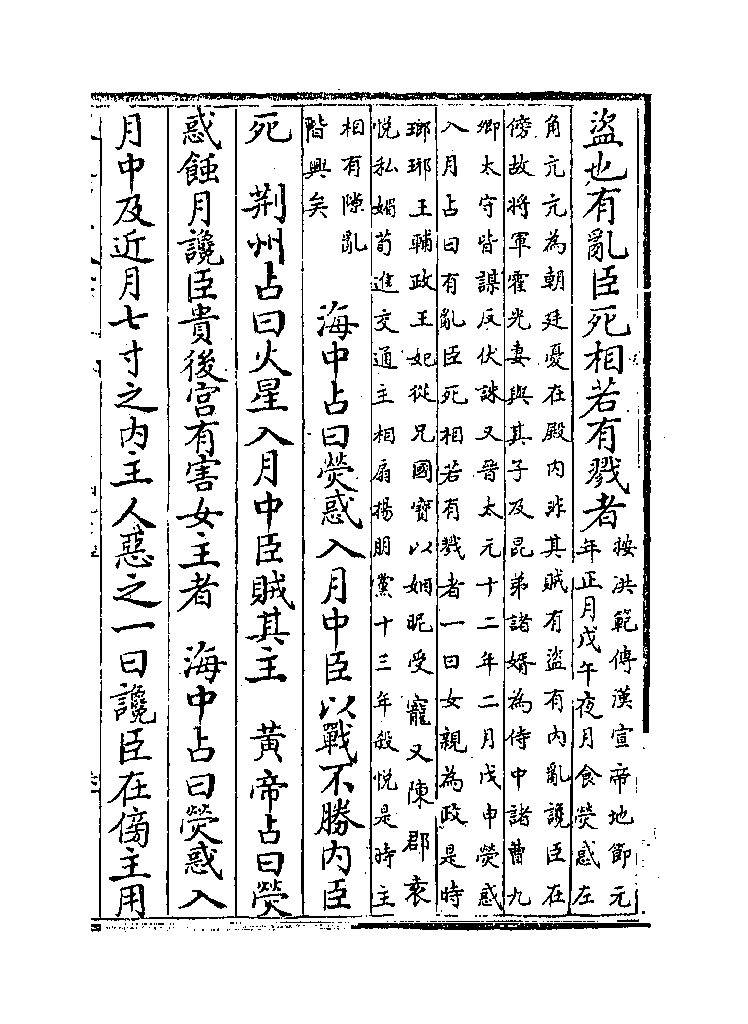 盜也有亂臣死相若有戮者
按洪範傳漢宣帝地節元
年正月戊午夜月食熒惑左
角亢亢為朝廷憂在殿内非其賊有盜有内亂讒臣在
傍故將軍霍光妻與其子及昆弟諸婿為侍中諸曹九
卿太守皆謀反伏誅又晉太元十二年二月戊申熒惑
入月占曰有亂臣死相若有戮者一曰女親為政是時
瑯琊王輔政王妃從兄國寶以姻昵受寵又陳郡袁
悦私媚苟進交通主相扇揚朋黨十三年殺悦是時主
相有隙亂
階興矣
海中占曰熒惑入月中臣以戰不勝内臣
死　荆州占曰火星入月中臣賊其主　黄帝占曰熒
惑蝕月讒臣貴後宫有害女主者　海中占曰熒惑入
月中及近月七寸之内主人惡之一曰讒臣在傍主用